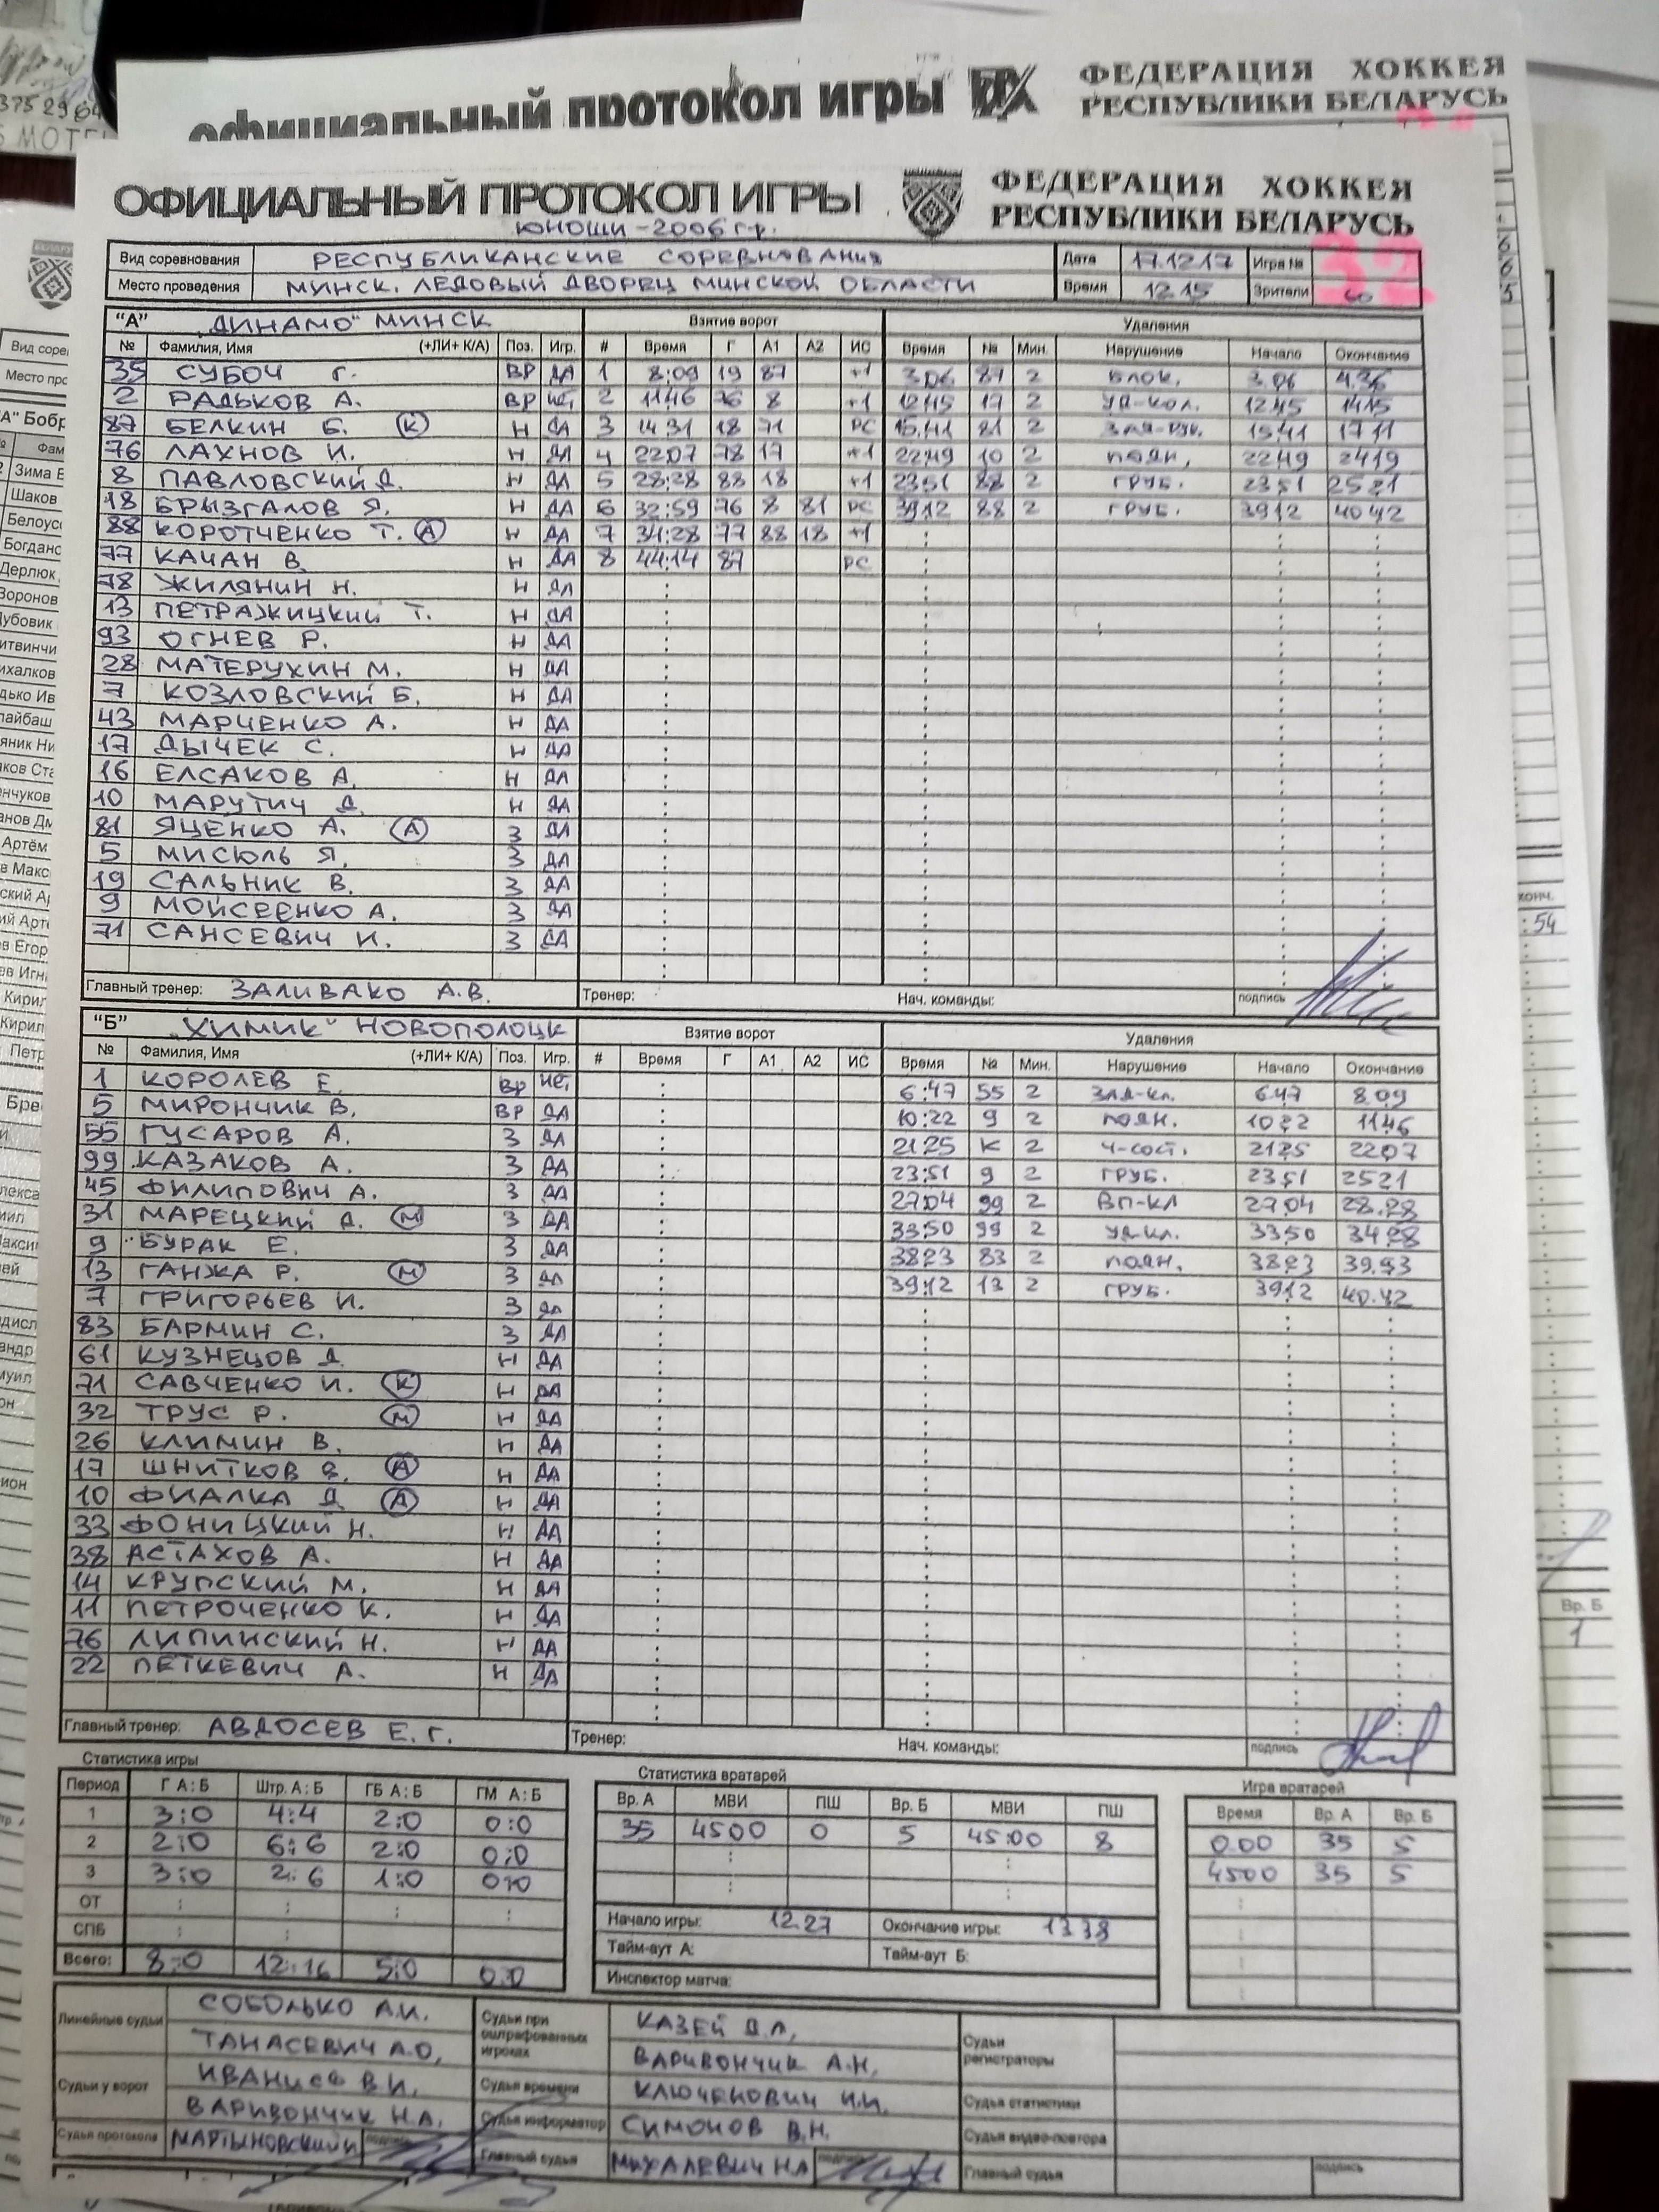 официальный протокол игры ФЕДЕРАЦИЯ ХОККЕЯ
РЕСПУБЛИКИ БЕЛАРУСЬ
ОФИЦИАЛЬНЫЙ ПРОТОКОЛ ИГРЫ ФЕДЕРАЦИЯ ХОККЕЯ
РЕСПУБЛИКИ БЕЛАРУСЬ
ЮНОШИ-2006 гр.
Вид соревнования РЕСПУБЛИКАНСКИЕ СОРЕВНОВАНИЯ Дата 17.12.17 Игра № 32
Место проведения МИНСК. ЛЕДОВЫЙ ДВОРЕЦ МИНСКОЙ ОБЛАСТИ Время 12.15 Зрители 60
"А" „ДИНАМО" МИНСК Взятие ворот Удаления
№ Фамилия, Имя (+ЛИ+ К/А) Поз. Игр. # Время Г А1 А2 ИС Время № Мин. Нарушение Начало Окончание
35 СУБОЧ Г. ВР ДА 1 8:09 19 87 +1 3:06 87 2 БЛОК. 3.06 4.36
2 РАДЬКОВ А. ВР НЕТ 2 11:46 76 8 +1 12:45 17 2 УД-КОЛ. 12:45 14:15
87 БЕЛКИН Б. (К) Н ДА 3 14:31 18 71 РС 15:41 81 2 15:41 17:11
76 ЛАХНОВ И. Н ДА 4 22:07 78 17 +1 22:49 10 2 ПОДН. 22:49 24:19
8 ПАВЛОВСКИЙ Д. Н ДА 5 28:28 88 18 +1 23:51 88 2 ГРУБ. 23:51 25:21
18 БРЫЗГАЛОВ Я. Н ДА 6 32:59 76 8 81 РС 39:12 88 2 ГРУБ. 39:12 40:42
88 КОРОТЧЕНКО Т. (А) Н ДА 7 34:28 77 88 18 +1
77 КАЧАН В. Н ДА 8 44:14 87 РС
78 ЖИЛЯНИН Н. Н ДА
13 ПЕТРАЖИЦКИЙ Т. Н ДА
93 ОГНЕВ Р. Н ДА
28 МАТЕРУХИН М. Н ДА
7 КОЗЛОВСКИЙ Б. Н ДА
43 МАРЧЕНКО А. Н ДА
17 ДЫЧЕК С. Н ДА
16 ЕЛСАКОВ А. Н ДА
10 МАРУТИЧ Д. Н ДА
81 ЯЦЕНКО А. (А) З ДА
5 МИСЮЛЬ Я. З ДА
19 САЛЬНИК В. З ДА
9 МОЙСЕЕНКО А. З ДА
71 САНСЕВИЧ И. З ДА
Главный тренер: ЗАЛИВАКО А.В. Тренер: Нач. команды: подпись
"Б" „ХИМИК" НОВОПОЛОЦК Взятие ворот Удаления
№ Фамилия, Имя (+ЛИ+ К/А) Поз. Игр. # Время Г А1 А2 ИС Время № Мин. Нарушение Начало Окончание
1 КОРОЛЕВ Е. ВР НЕТ 6:47 55 2 ЗАД-КЛ. 6:47 8:09
5 МИРОНЧИК В. ВР ДА 10:22 9 2 ПОДН. 10:22 11:46
55 ГУСАРОВ А. З ДА 21:25 К 2 Ч-СОСТ. 21:25 22:07
99 КАЗАКОВ А. З ДА 23:51 9 2 ГРУБ. 23:51 25:21
45 ФИЛИПОВИЧ А. З ДА 27:04 99 2 ВП-КЛ 27:04 28:28
31 МАРЕЦКИЙ Д. (М) З ДА 33:50 99 2 УД-КЛ. 33:50 34:28
9 БУРАК Е. З ДА 38:23 83 2 ПОДН. 38:23 39.53
13 ГАНЖА Р. (М) З ДА 39:12 13 2 ГРУБ. 39:12 40.42
7 ГРИГОРЬЕВ И. З ДА
83 БАРМИН С. З ДА
61 КУЗНЕЦОВ Д. Н ДА
71 САВЧЕНКО И. (К) Н ДА
32 ТРУС Р. (М) Н ДА
26 КЛИМИН В. Н ДА
17 ШНИТКОВ В. (А) Н ДА
10 ФИАЛКА Д. (А) Н ДА
33 ФОНИЦКИЙ Н. Н ДА
38 АСТАХОВ А. Н ДА
14 КРУПСКИЙ М. Н ДА
11 ПЕТРОЧЕНКО К. Н ДА
76 ЛИПИНСКИЙ Н. Н ДА
22 ПЕТКЕВИЧ А. Н ДА
Главный тренер: АВДОСЕВ Е.Г. Тренер: Нач. команды: подпись
Статистика игры Статистика вратарей Игра вратарей
Период Г А:Б Штр. А:Б ГБ А:Б ГМ А:Б Вр. А МВИ ПШ Вр. Б МВИ ПШ Время Вр. А Вр. Б
1 3:0 4:4 2:0 0:0 35 45:00 0 5 45:00 8 0:00 35 5
2 2:0 6:6 2:0 0:0 45:00 35 5
3 3:0 2:6 1:0 0:0
ОТ
СПБ
Всего: 8:0 12:16 5:0 0:0
Начало игры: 12.27 Окончание игры: 13 38
Тайм-аут А: Тайм-аут Б:
Инспектор матча:
Линейные судьи СОБОЛЬКО А.И. Судьи при оштрафованных игроках КАЗЕЙ Д.Л. Судьи регистраторы
ТАНАСЕВИЧ А.О. ВАРИВОНЧИК А.Н.
Судьи у ворот ИВАНЦЕВ В.И. Судья времени КЛЮЧЕНОВИЧ И.И. Судья статистики
ВАРИВОНЧИК Н.А. Судья информатор СИМОНОВ В.Н. Судья видео-повтора
Судья протокола МАРТЫНОВСКИЙ подпись Главный судья МИХАЛЕВИЧ Н.А подпись Главный судья подпись